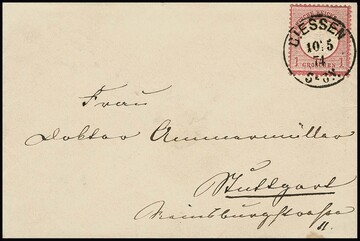 DIESSEN
10 5
74
1 GROSCHEN 1
Frau
Doktor Ammermüller
Stuttgart
Reinsburgstrasse
11.